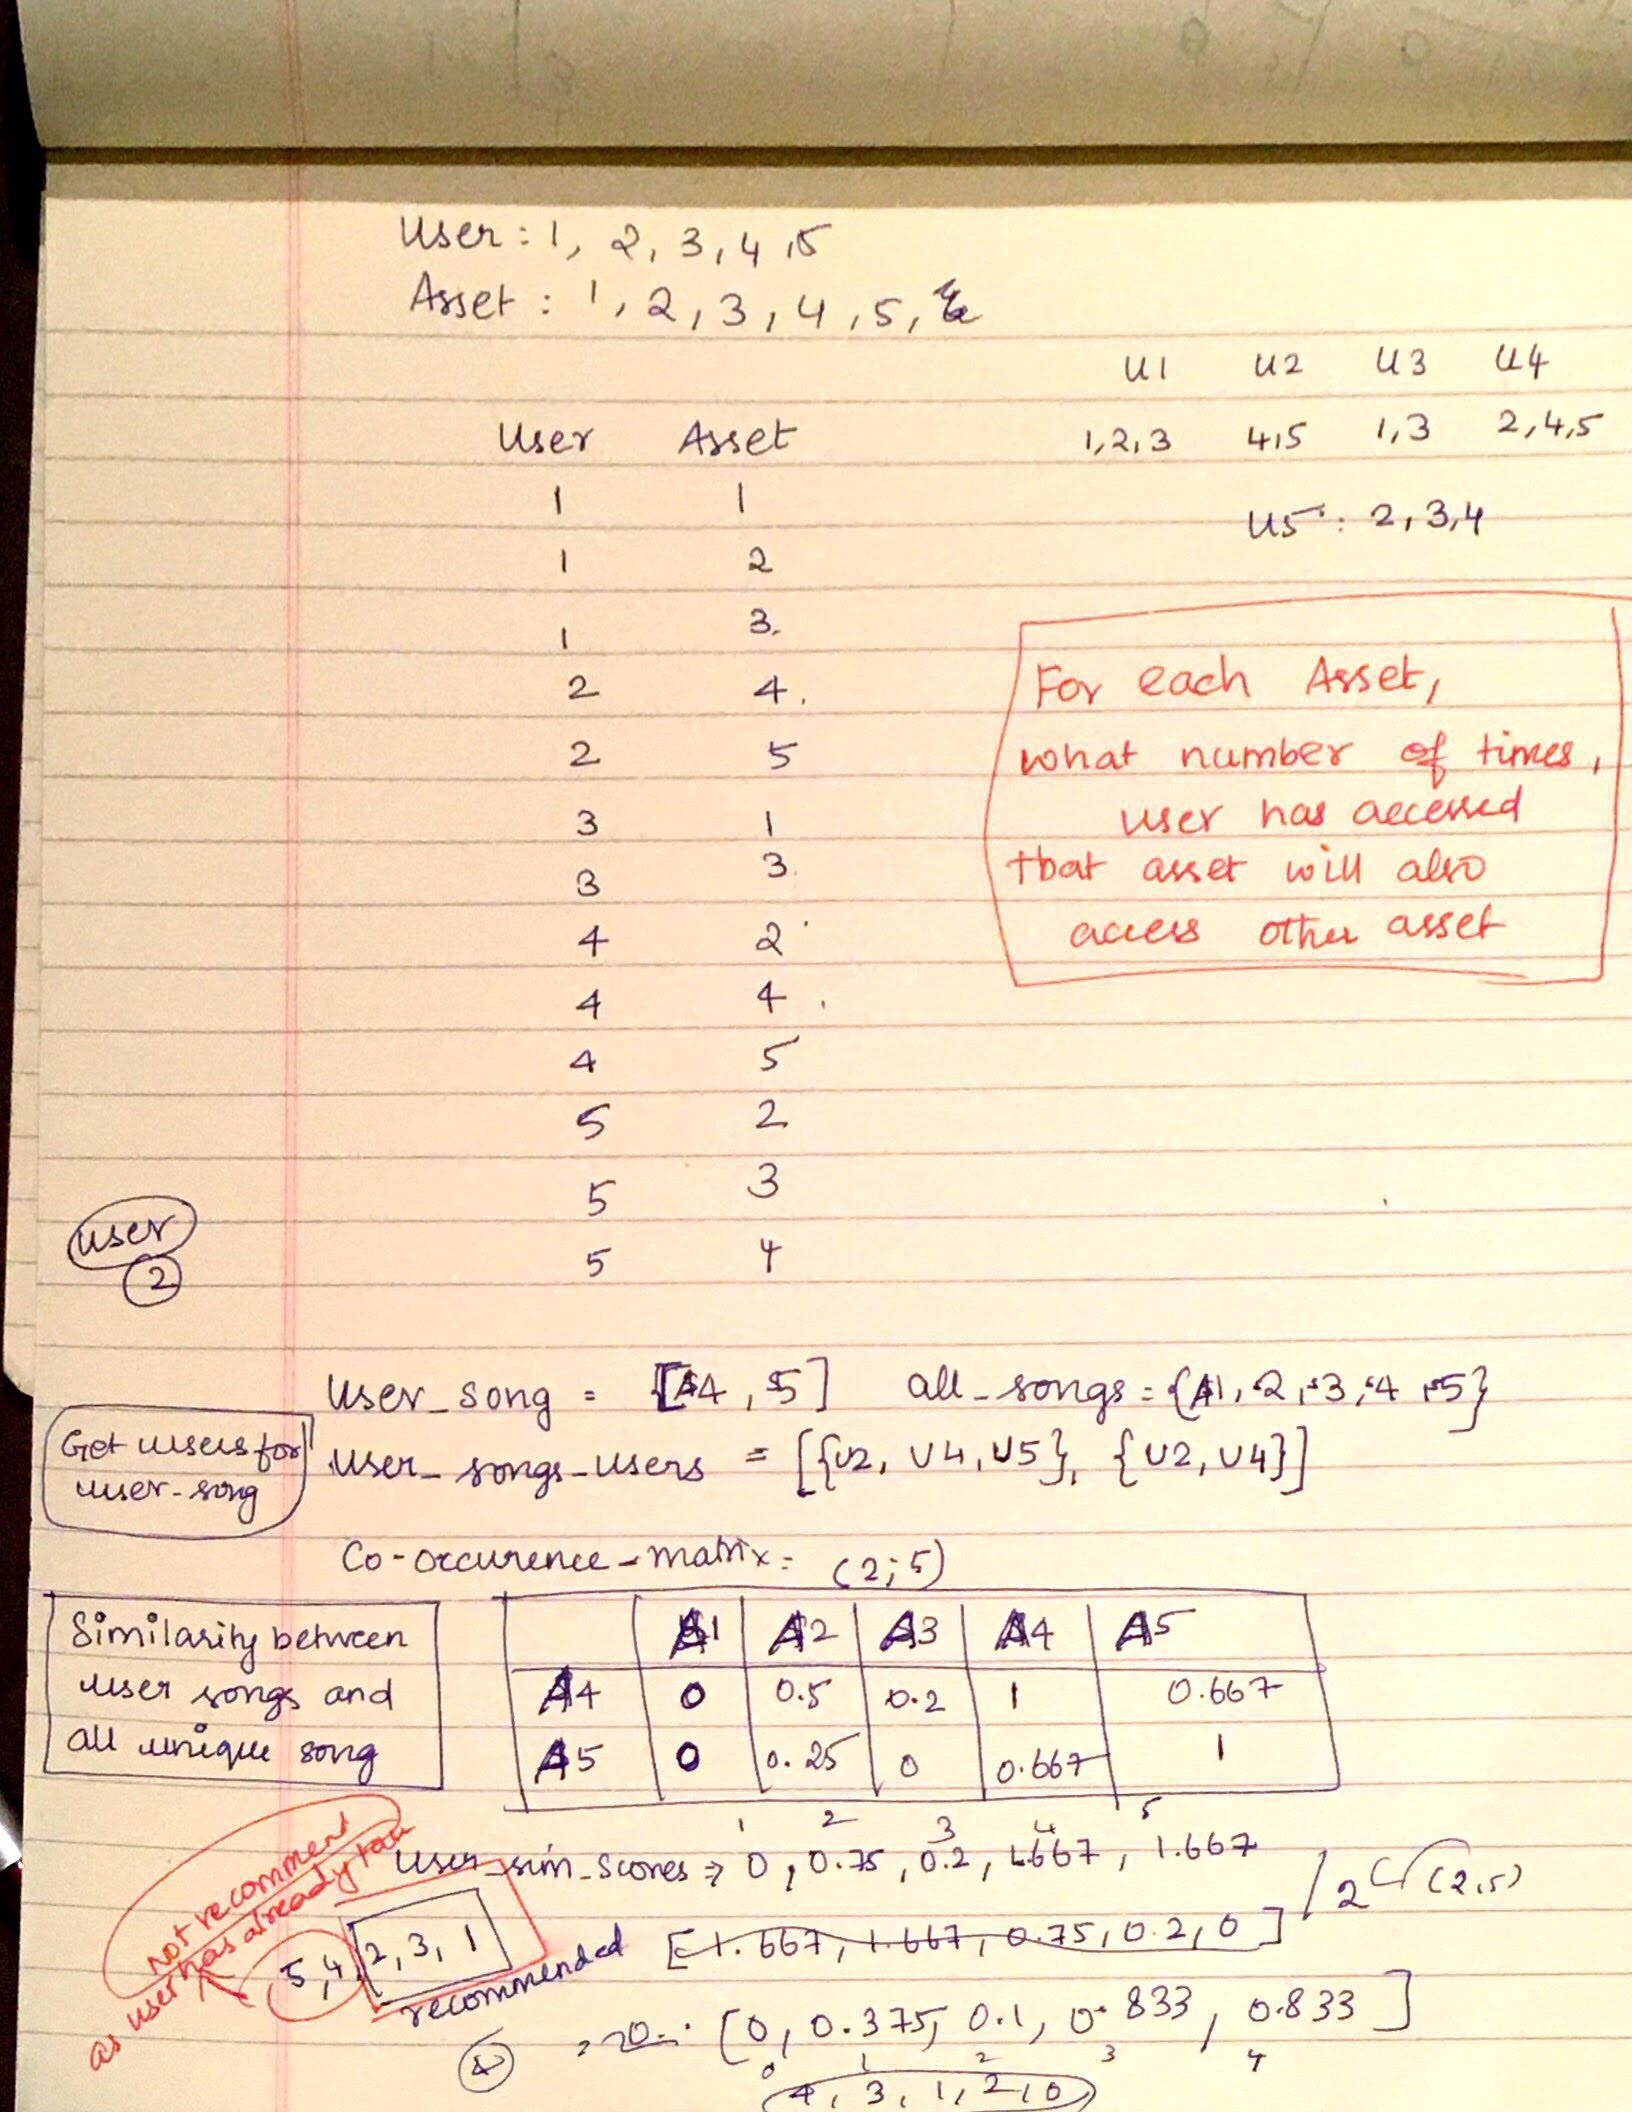 User : 1, 2, 3, 4, 5
Asset : 1, 2, 3, 4, 5,
U1 U2 U3 U4
User Asset 1,2,3 4,5 1,3 2,4,5
1 1
U5 : 2,3,4
1 2
1 3
2 4
2 5
3 1
3 3
4 2
4 4
4 5
5 2
5 3
5 4
For each Asset,
what number of times,
user has accessed
that asset will also
access other asset
user
2
User_song = [A4, 5] all_songs = {A1, 2, 3, 4, 5}
Get users for
user-song
User_songs_users = [{U2, U4, U5}, {U2, U4}]
Co-occurence-matrix = (2,5)
Similarity between
user songs and
all unique song
A1 A2 A3 A4 A5
A4 0 0.5 0.2 1 0.667
A5 0 0.25 0 0.667 1
1 2 3 4 5
User_sim_scores ⇒ 0, 0.75, 0.2, 1.667, 1.667
/ 2 (2,5)
[1.667, 1.667, 0.75, 0.2, 0]
Not recommend
as user has already
5,4, 2, 3, 1
recommended
[0, 0.375, 0.1, 0.833, 0.833]
0 1 2 3 4
4, 3, 1, 2, 0